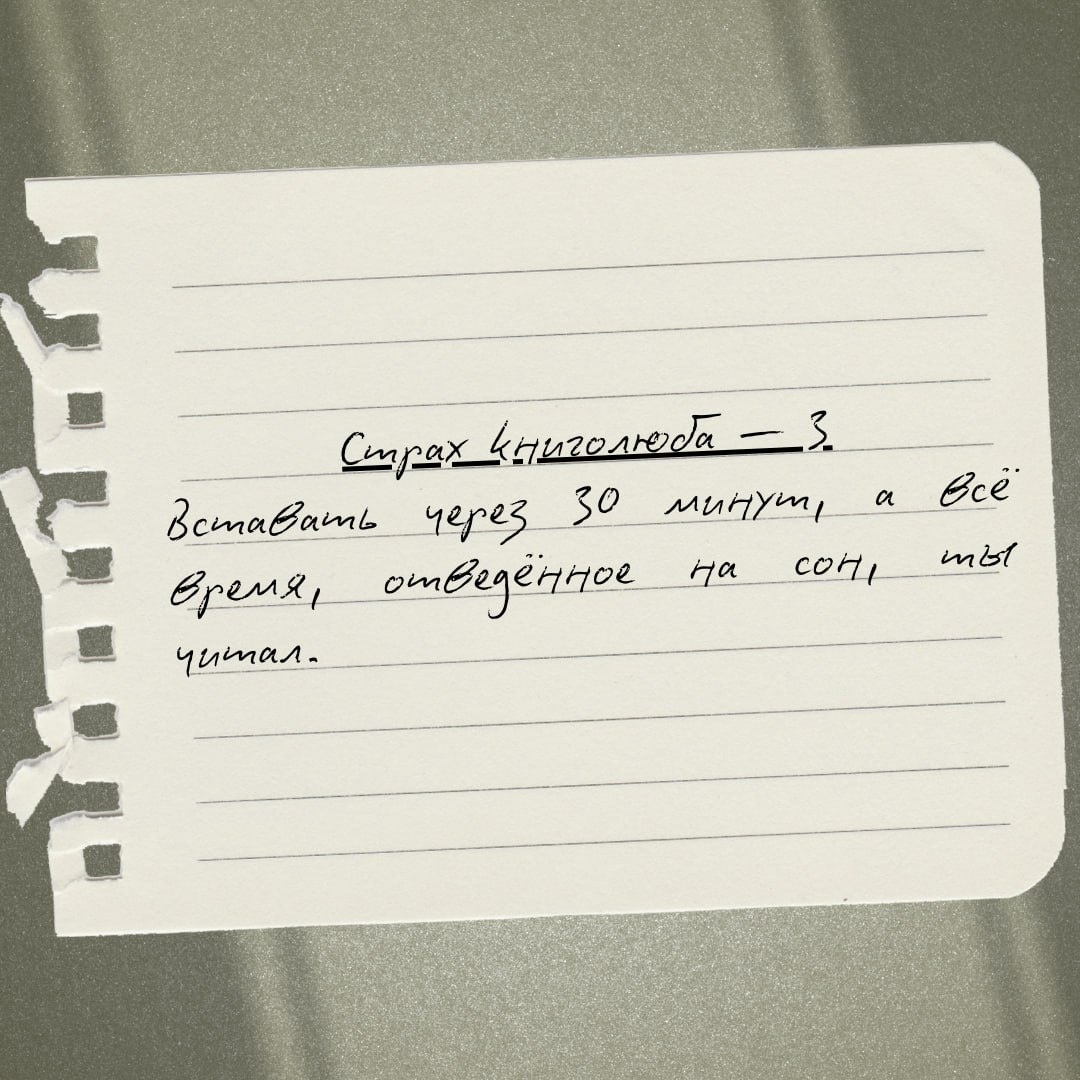 Страх книголюба — 3
Вставать через 30 минут, а всё
время, отведённое на сон, ты
читал.